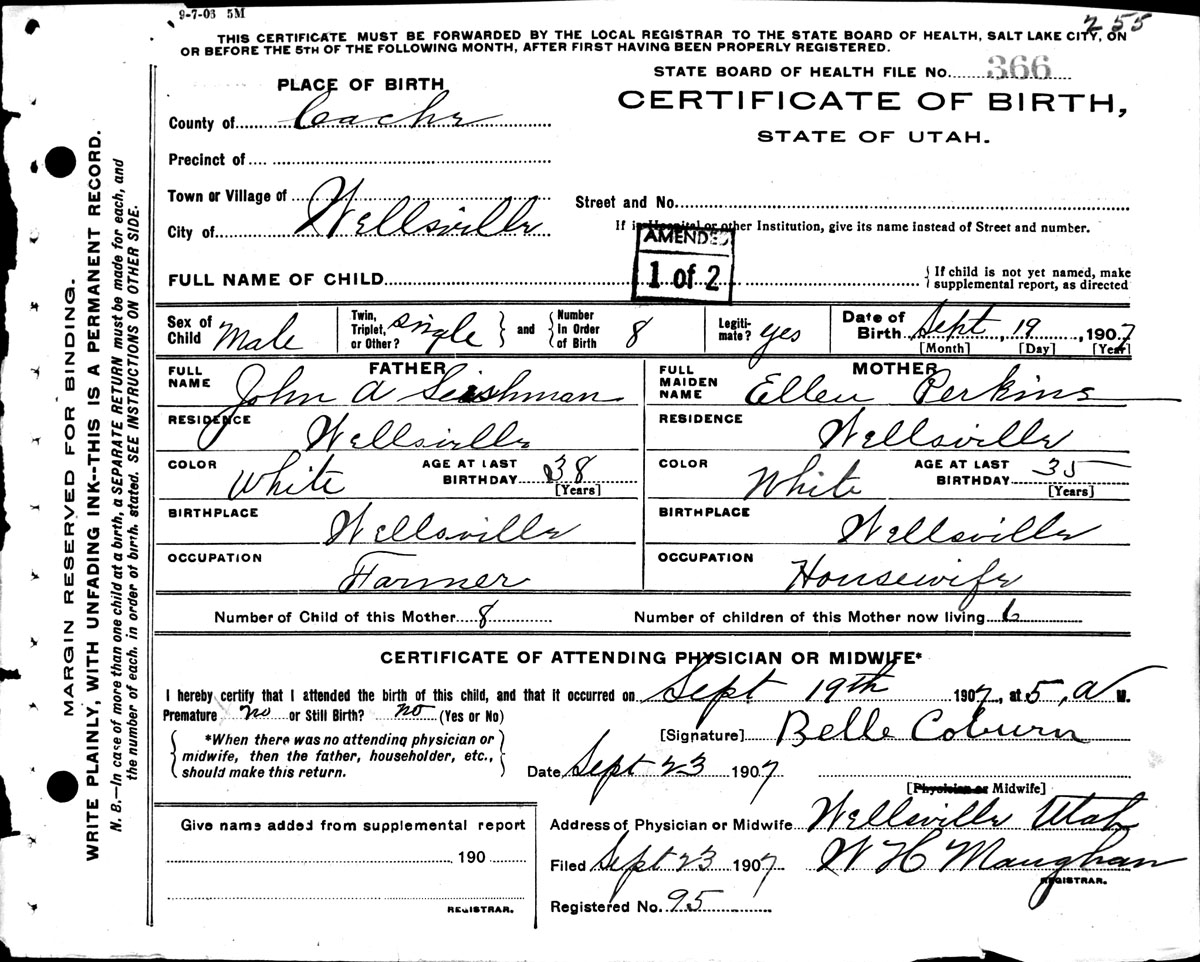 9-7-06 5M
255
THIS CERTIFICATE MUST BE FORWARDED BY THE LOCAL REGISTRAR TO THE STATE BOARD OF HEALTH, SALT LAKE CITY, ON
OR BEFORE THE 5TH OF THE FOLLOWING MONTH, AFTER FIRST HAVING BEEN PROPERLY REGISTERED.
STATE BOARD OF HEALTH FILE NO. 366
CERTIFICATE OF BIRTH,
STATE OF UTAH.
PLACE OF BIRTH
County of Cache
Precinct of
Town or Village of
City of Wellsville
Street and No.
If in Hospital or other Institution, give its name instead of Street and number.
AMENDED
1 of 2
FULL NAME OF CHILD
{ If child is not yet named, make
supplemental report, as directed
Sex of Child Male
Twin, Triplet, or Other? single } and { Number In Order of Birth 8
Legiti-mate? yes
Date of Birth Sept 19, 1907
[Month] [Day] [Year]
FATHER
FULL NAME John A Leishman
RESIDENCE Wellsville
COLOR White AGE AT LAST BIRTHDAY 38 [Years]
BIRTHPLACE Wellsville
OCCUPATION Farmer
MOTHER
FULL MAIDEN NAME Ellen Perkins
RESIDENCE Wellsville
COLOR White AGE AT LAST BIRTHDAY 35 [Years]
BIRTHPLACE Wellsville
OCCUPATION Housewife
Number of Child of this Mother 8
Number of children of this Mother now living 6
CERTIFICATE OF ATTENDING PHYSICIAN OR MIDWIFE*
I hereby certify that I attended the birth of this child, and that it occurred on Sept 19th 1907, at 5, a M.
Premature no or Still Birth? no (Yes or No)
*When there was no attending physician or
midwife, then the father, householder, etc.,
should make this return.
[Signature] Belle Coburn
Date Sept 23 1907
[Physician or Midwife]
Address of Physician or Midwife Wellsville Utah
Filed Sept 23 1907 W H Maughan
REGISTRAR.
Registered No. 95
Give name added from supplemental report
190
REGISTRAR.
MARGIN RESERVED FOR BINDING.
WRITE PLAINLY, WITH UNFADING INK--THIS IS A PERMANENT RECORD.
N. B.—In case of more than one child at a birth, a SEPARATE RETURN must be made for each, and
the number of each, in order of birth, stated. SEE INSTRUCTIONS ON OTHER SIDE.